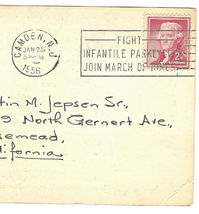 CAMDEN, N.J.
JAN 25
5 30 PM
1956
FIGHT
INFANTILE PARALYSIS
JOIN MARCH OF DIMES
2¢
tin M. Jepsen Sr.,
9 North Gernert Ave.,
semead,
lifornia